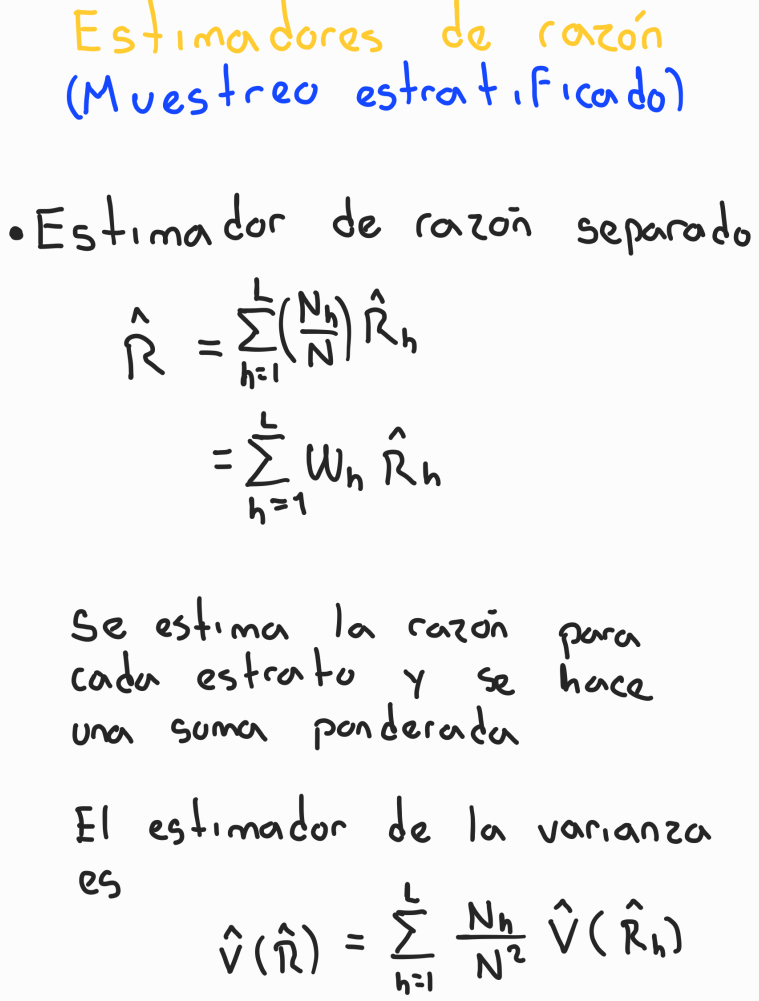 Estimadores de razón
(Muestreo estratificado)
• Estimador de razón separado
R̂ = ∑_{h=1}^{L} (N_h/N) R̂_h
= ∑_{h=1}^{L} W_h R̂_h
Se estima la razón para
cada estrato y se hace
una suma ponderada
El estimador de la varianza
es
V̂(R̂) = ∑_{h=1}^{L} N_h/N² V̂(R̂_h)